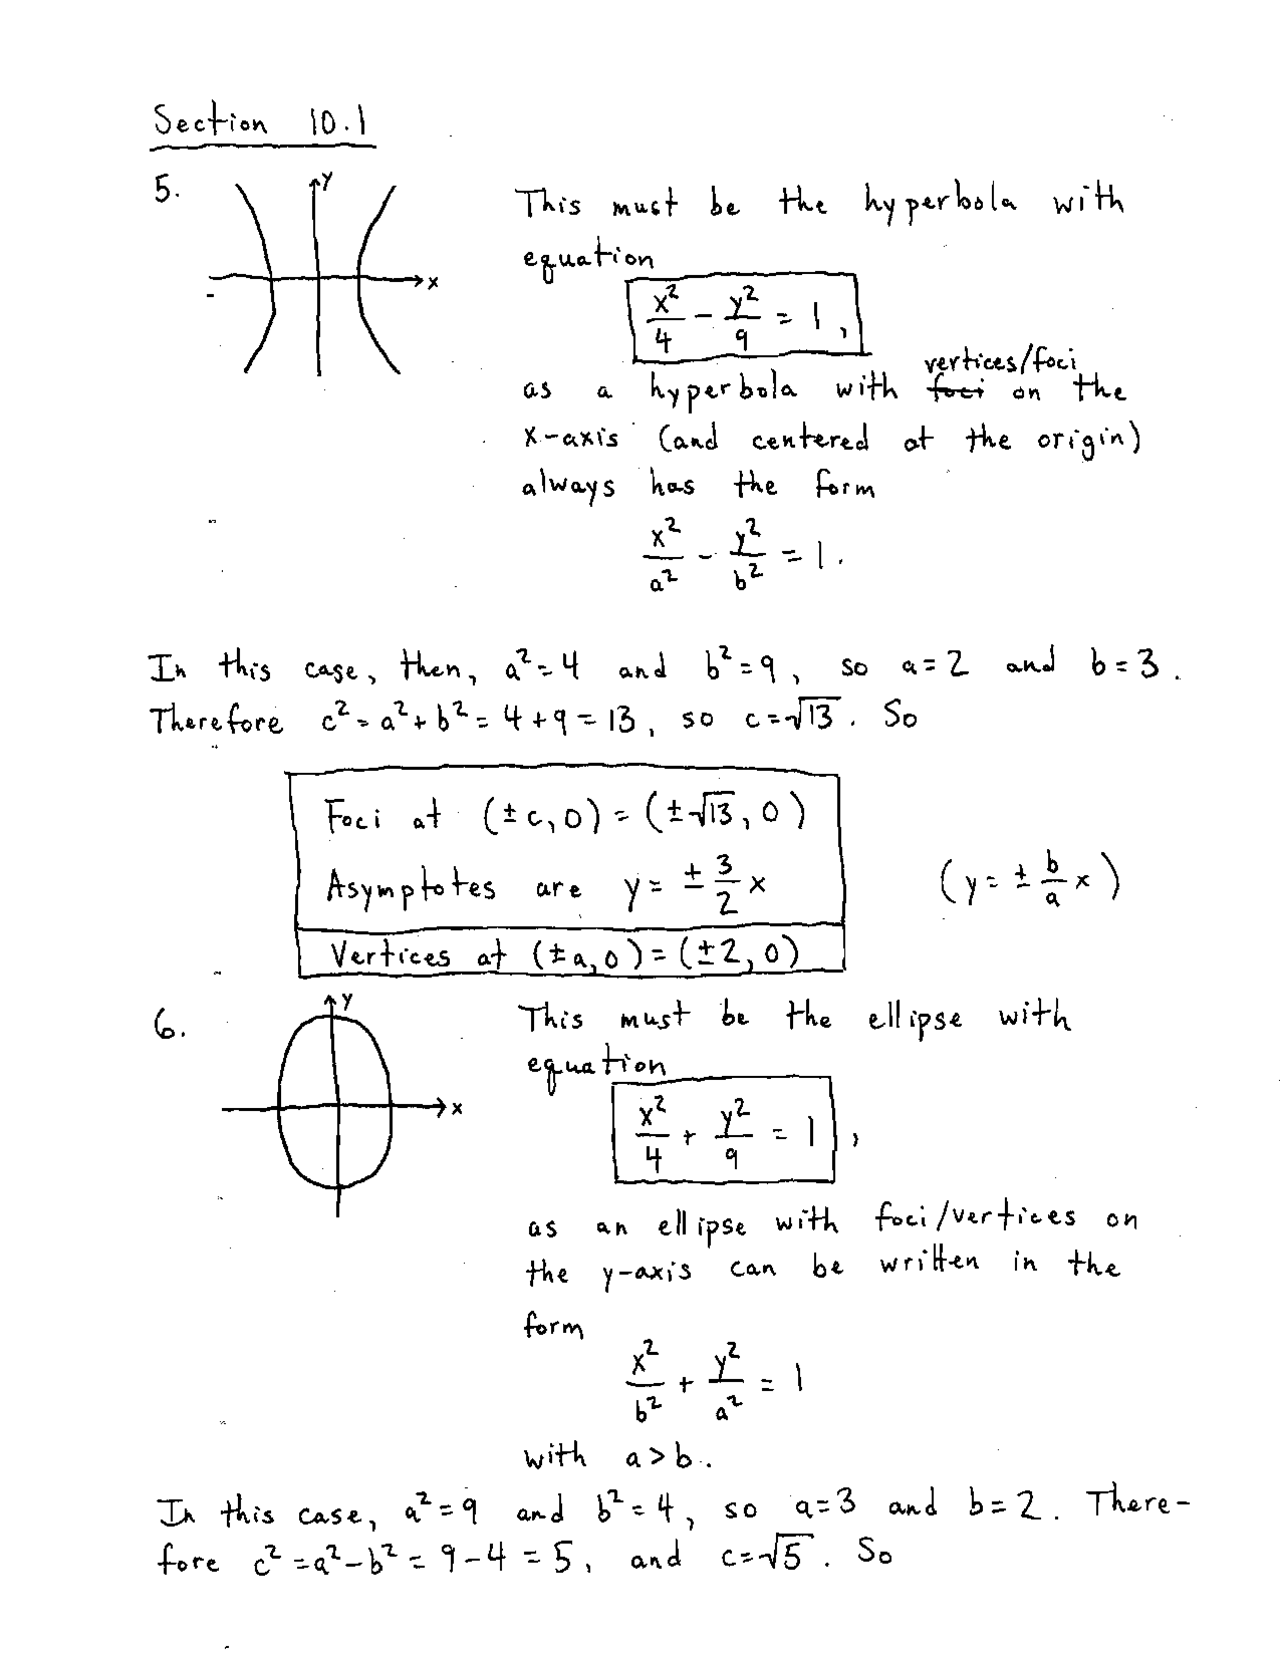 Section 10.1
5.
y
x
This must be the hyperbola with
equation
x²/4 - y²/9 = 1,
vertices/foci
as a hyperbola with foci on the
x-axis (and centered at the origin)
always has the form
x²/a² - y²/b² = 1.
In this case, then, a² = 4 and b² = 9, so a = 2 and b = 3.
Therefore c² = a² + b² = 4 + 9 = 13, so c = √13. So
Foci at (±c, 0) = (±√13, 0)
Asymptotes are y = ± 3/2 x (y = ± b/a x)
Vertices at (±a, 0) = (±2, 0)
6.
y
x
This must be the ellipse with
equation
x²/4 + y²/9 = 1,
as an ellipse with foci/vertices on
the y-axis can be written in the
form
x²/b² + y²/a² = 1
with a > b.
In this case, a² = 9 and b² = 4, so a = 3 and b = 2. There-
fore c² = a² - b² = 9 - 4 = 5, and c = √5. So